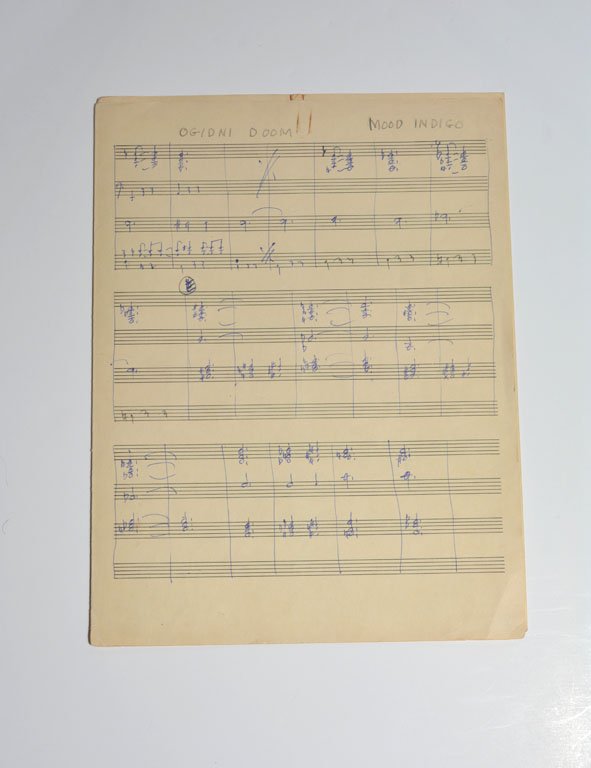 OGIDNI DOOM MOOD INDIGO